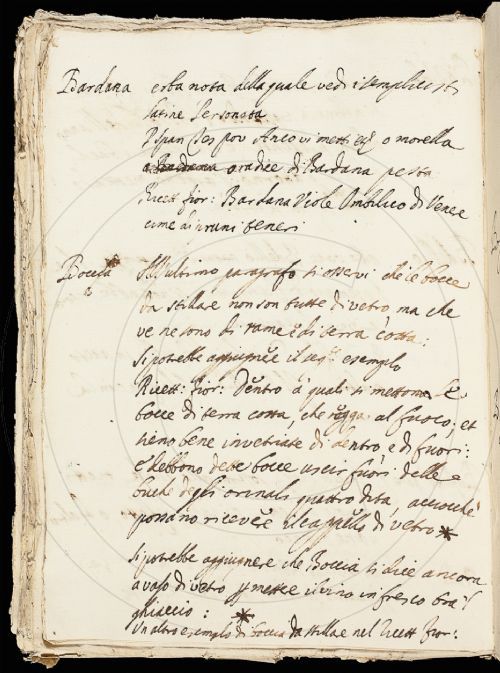 Bardana erba nota della quale vedi i semplicisti
latine Personata
P. Span. Tes. pov. Anco vi metti ... o morella
o radice di Bardana pesta
Ricett. fior: Bardana Viole Ombilico di Venere
cime di pruni teneri
Boccia All'ultimo paragrafo si osservi che le bocce
da stillare non son tutte di vetro ma che
ve ne sono di rame e di terra cotta:
Si potrebbe aggiugnere il seg. esempio
Ricett. Fior: Dentro a' quali si mettono le
bocce di terra cotta, che regga al fuoco, et
sieno bene invetriate di dentro e di fuori:
E debbono dette bocce uscir fuori delle
buche degli orinali quattro dita, acciocchè
possano ricevere il cappello di vetro *
Si potrebbe aggiugnere che Boccia si dice ancora
a vaso di vetro p mettere il vino in fresco tra 'l
ghiaccio: *
Un altro esempio di boccia da stillare nel Ricett Fior: